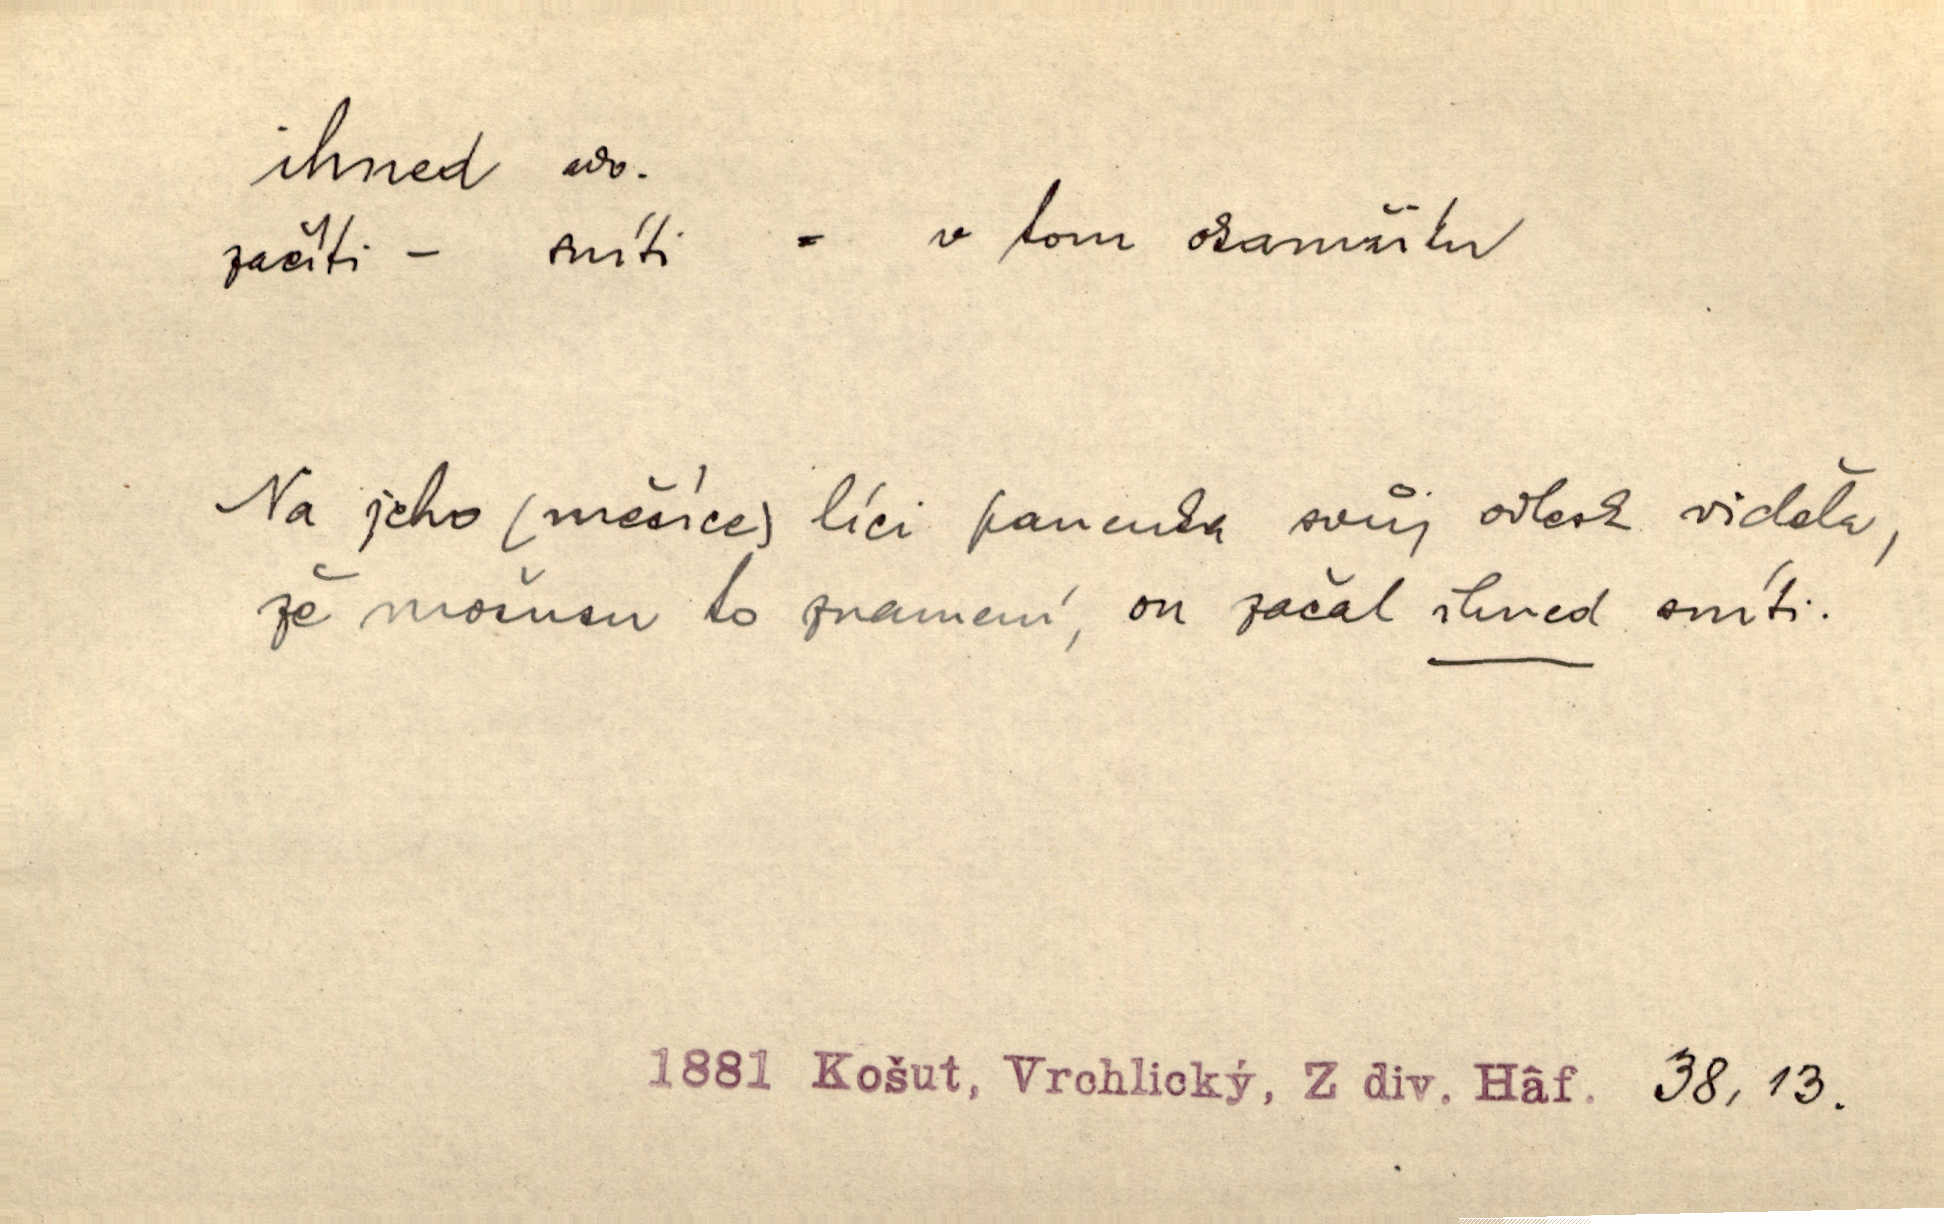 ihned adv.
začíti – sníti = v tom okamžiku
Na jeho (měsíce) líci panenka svůj odlesk viděla,
že mošusu to znamení, on začal ihned sníti.
1881 Košut, Vrchlický, Z div. Hâf. 38, 13.